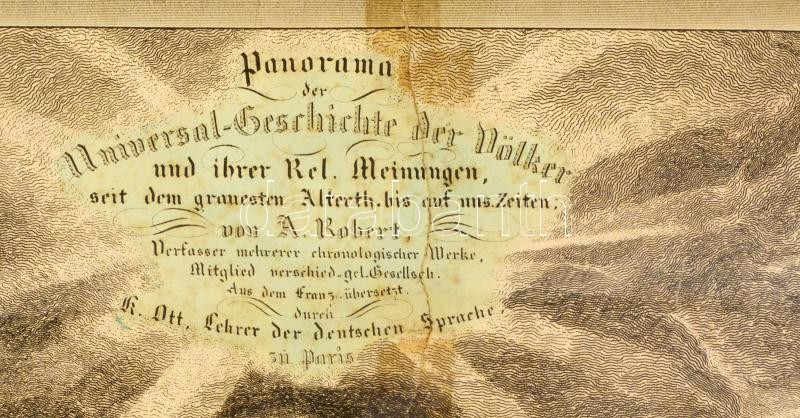 Panorama
der
Universal-Geschichte der Völker
und ihrer Rel. Meinungen,
seit dem grauesten Alterth. bis auf uns. Zeiten;
von A. Robert,
Verfasser mehrerer chronologischer Werke,
Mitglied verschied. gel. Gesellsch.
Aus dem Franz. übersetzt.
durch
K. Ott, Lehrer der deutschen Sprache,
zu Paris
darabanth